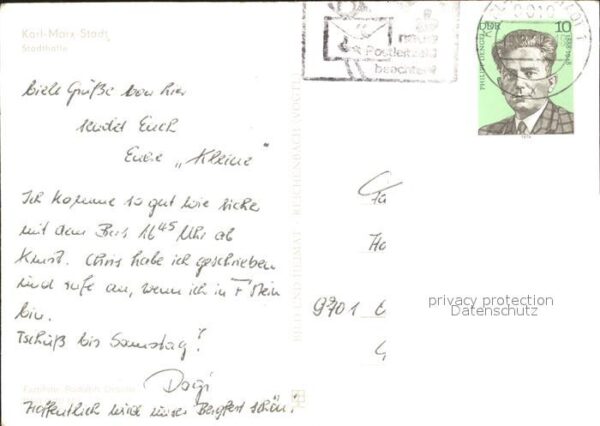 Karl-Marx-Stadt
Stadthalle
Viele Grüße von hier
sendet Euch
Eure „Kleine"
Ich komme so gut wie sicher
mit dem Bus 16 45 Uhr ab
Chris habe ich geschrieben
und rufe an, wenn ich in F'stein
bin.
Tschüß bis Samstag!
Hoffentlich wird unser Bergfest schön!
BILD UND HEIMAT REICHENBACH
neue
Postleitzahl
beachten!
DDR 10
PHILIPP DENGEL
9701
privacy protection
Datenschutz